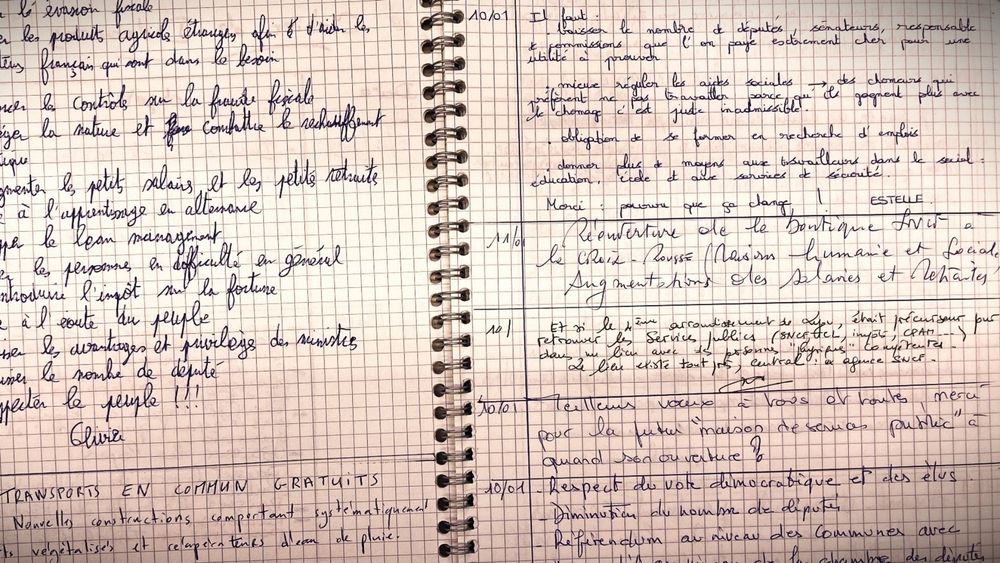 évasion fiscale
les produits agricole étranges afin d'aider les
français qui sont dans le besoin
le contrôle sur la fraude fiscale
la nature et combattre le rechauffement
ique
gmenter les petits salaires et les petits retraits
à l'apprentissage en alternance
le lean management
les personnes en difficulté en général
ntroduire l'impôt sur la fortune
à l'ecoute du peuple
les avantages et privilège des ministres
le nombre de député
specter le peuple !!!
Olivier
TRANSPORTS EN COMMUN GRATUITS
Nouvelles constructions comportant systématiquement
ts végétalisés et récupérateurs d'eau de pluie.
10/01
Il faut :
- baisser le nombre de députés, sénateurs, responsable
de commissions que l'on paye extrement cher pour une
utilité à prouver
. mieux réguler les aides sociales → des chomeurs qui
préfèrent ne pas travailler parce qu'ils gagnent plus avec
le chomage c'est juste inadmissible.
. obligation de se former en recherche d'emplois
. donner plus de moyens aux travailleurs dans le social :
éducation, école et aux services de sécurité.
Merci : pourvu que ça change ! ESTELLE.
11/01
Réouverture de la boutique SNCF à
la CROIX-ROUSSE (Maison humanie et Sociale
Augmentations des salaires et Retraites
10/
Et si le 4ème arrondissement de Lyon, était précurseur pour
retrouver les Services publics (SNCF, TCL, impôt, CPAM...)
dans un lieu avec des personnes "physique" compétentes.
Le lieu existe tout près, central : agence SNCF.
10/01
Meilleurs voeux à tous et toutes, merci
pour la futur "maison de services public" à
quand son ouverture ?
10/01
- Respect du vote démocratique et des élus.
- Diminution du nombre de députés
- Référendum au niveau des Communes avec
de la chambre des députés